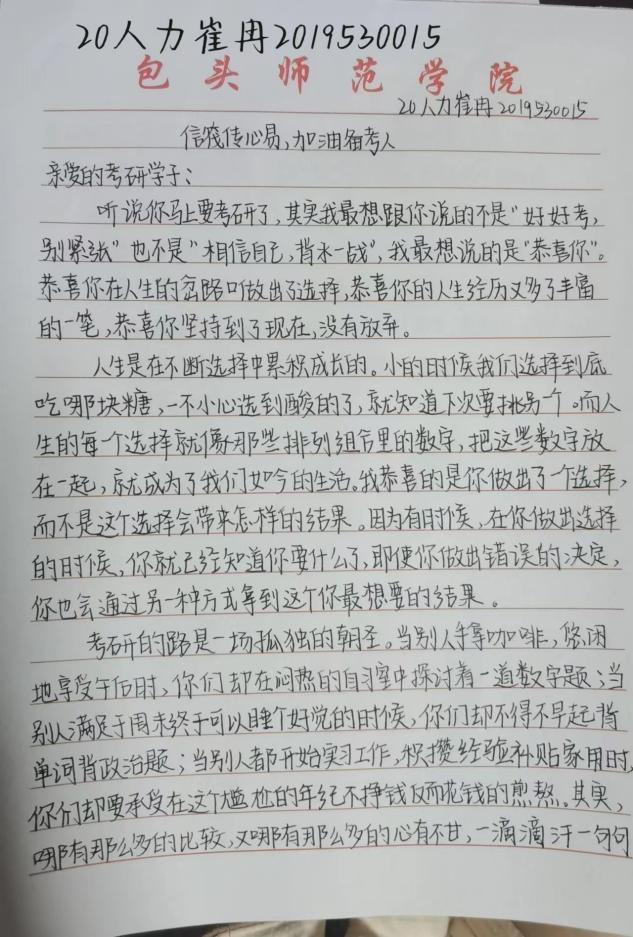 20人力崔冉2019530015
包头师范学院
20人力崔冉2019530015
信筏传心易，加油备考人
亲爱的考研学子：
听说你马上要考研了，其实我最想跟你说的不是“好好考，
别紧张”也不是“相信自己，背水一战”，我最想说的是“恭喜你”。
恭喜你在人生的岔路口做出了选择，恭喜你的人生经历又多了丰富
的一笔，恭喜你坚持到了现在，没有放弃。
人生是在不断选择中累积成长的。小的时候我们选择到底
吃哪块糖，一不小心选到酸的了，就知道下次要挑另一个。而人
生的每个选择就像那些排列组合里的数字，把这些数字放
在一起，就成为了我们如今的生活。我恭喜的是你做出了一个选择，
而不是这个选择会带来怎样的结果。因为有时候，在你做出选择
的时候，你就已经知道你要什么了，即使你做出错误的决定，
你也会通过另一种方式拿到这个你最想要的结果。
考研的路是一场孤独的朝圣。当别人手拿咖啡，悠闲
地享受午后时，你们却在闷热的自习室中探讨着一道数学题；当
别人满足于周末终于可以睡个好觉的时候，你们却不得不早起背
单词背政治题；当别人都开始实习工作，积攒经验补贴家用时，
你们却要承受在这个尴尬的年纪不挣钱反而花钱的煎熬。其实，
哪有那么多的比较，又哪有那么多的心有不甘，一滴滴汗一句句